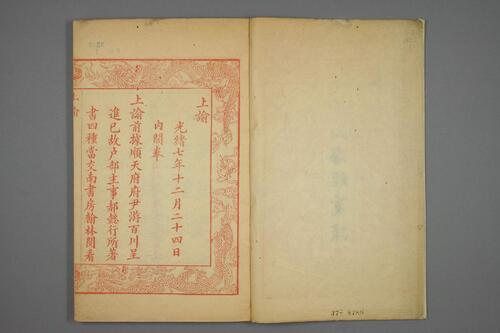 上諭
光緒七年十二月二十四日
內閣奉
上諭前據順天府府尹游百川呈
進已故戶部主事郝懿行所著
書四種當交南書房翰林閱看
上諭